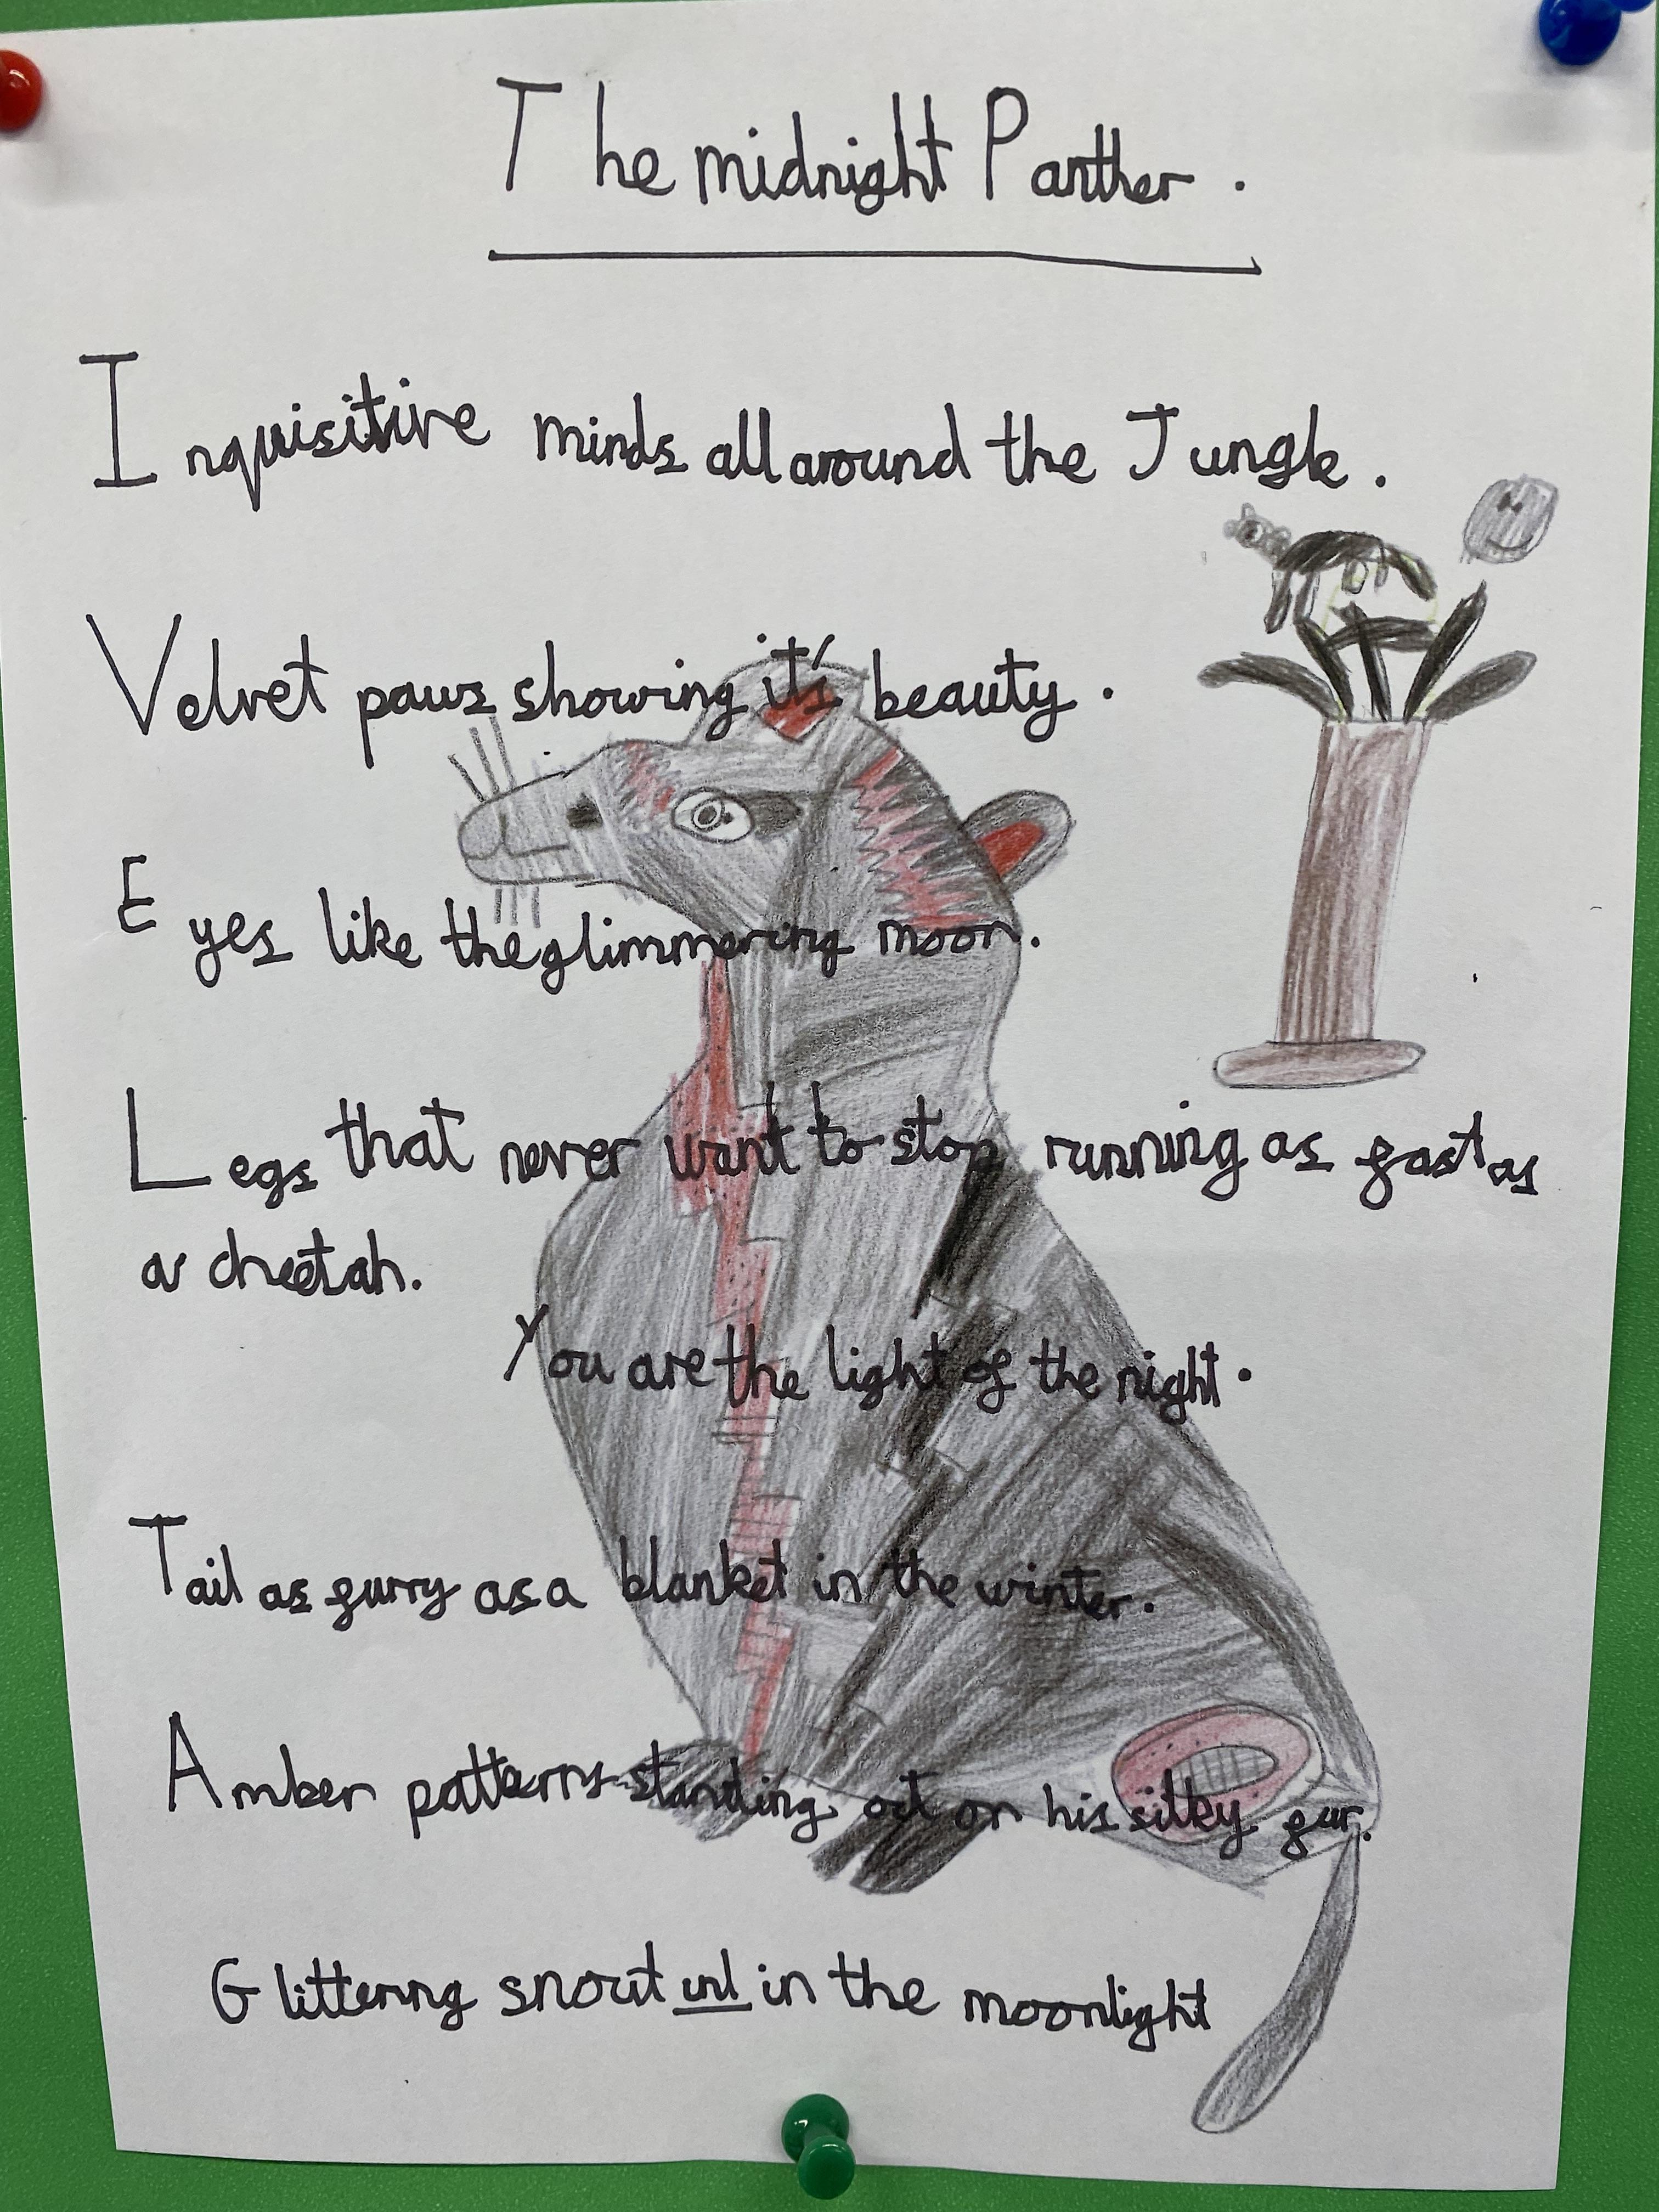 The midnight Panther.
Inquisitive minds all around the Jungle.
Velvet paws showing it's beauty.
Eyes like the glimmering moon.
Legs that never want to stop running as fast as
a cheetah.
You are the light of the night.
Tail as furry as a blanket in the winter.
Amber patterns standing out on his silky fur.
Glittering snout in the moonlight